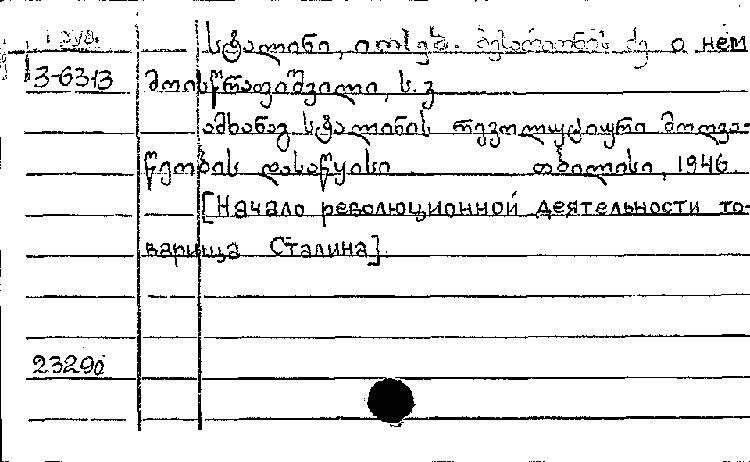 სტალინი, იოსებ. ბესარიონის ძე о нем
3-6313 მოსწრაფიშვილი, ს. ვ
ამხანაგ სტალინის რევოლუციური მოღვა-
წეობის დასაწყისი თბილისი, 1946.
[Начало революционной деятельности то-
варища Сталина]
23290